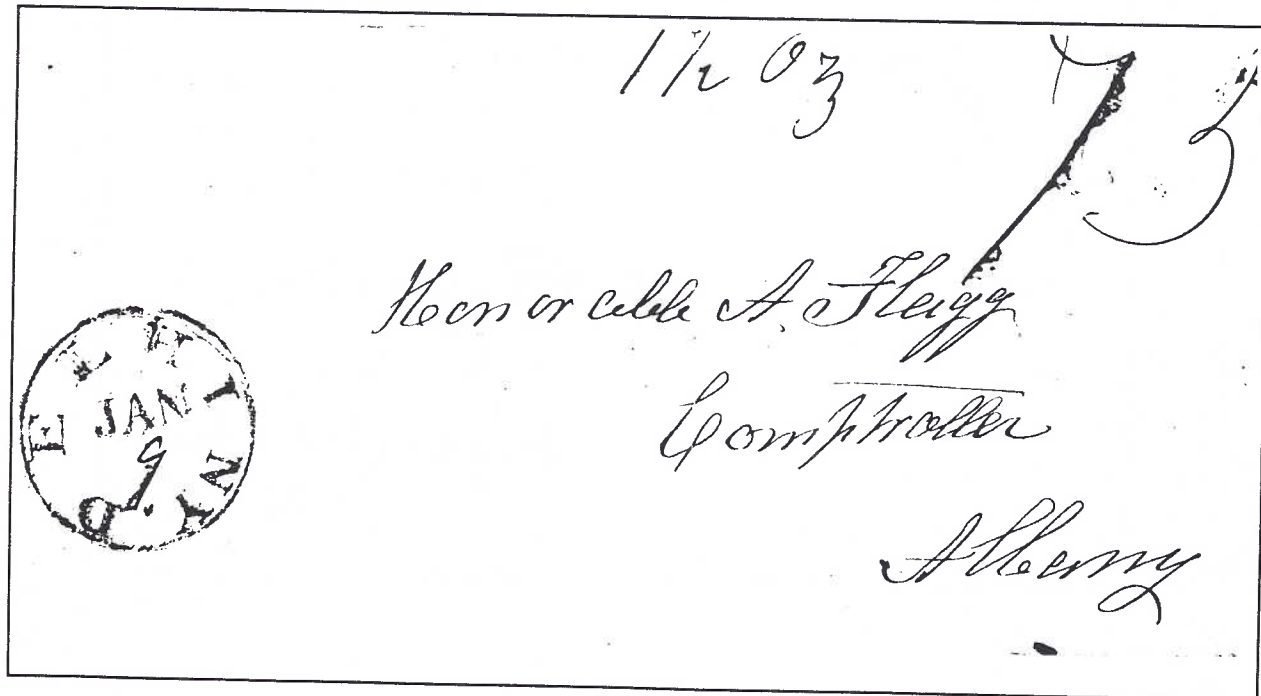 1½ Oz
Honorable A. Flagg
Comptroller
Albany
DELHI NY
JAN
9